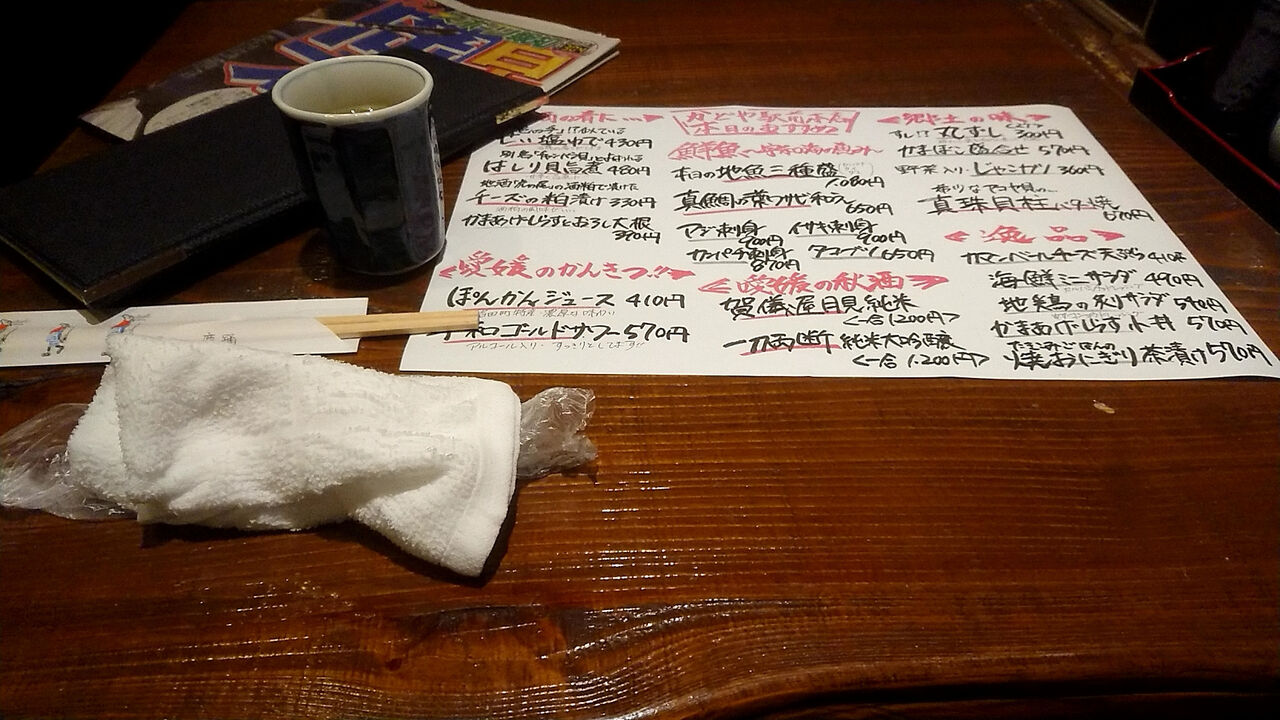 の肴に…
塩ゆで 430円
ほしり貝旨煮 480円
チーズの粕漬け 330円
かまあげしらすとおろし大根
390円
<愛媛のかんきつ!!>
ぽんかんジュース 410円
ゴールドサワー 570円
アルコール入り
かどや駅前本店
本日のおすすめ
本日の地魚三種盛
1,080円
真鯛の葉ワサビ和え
650円
アジ刺身 900円
イサキ刺身 900円
カンパチ刺身 870円
タコブツ 650円
<愛媛の秋酒>
賀儀屋月見純米
<一合1,200円>
一刀両断 純米大吟醸
<一合1,200円>
<郷土の味>
丸ずし 300円
かまぼこ盛合せ 570円
野菜入り じゃこカツ 360円
真珠貝柱バター焼
670円
<逸品>
カマンベールチーズ天ぷら 410円
海鮮ミニサラダ 490円
地鶏の炙りサラダ 590円
かまあげしらす小丼 570円
焼おにぎり茶漬け 570円